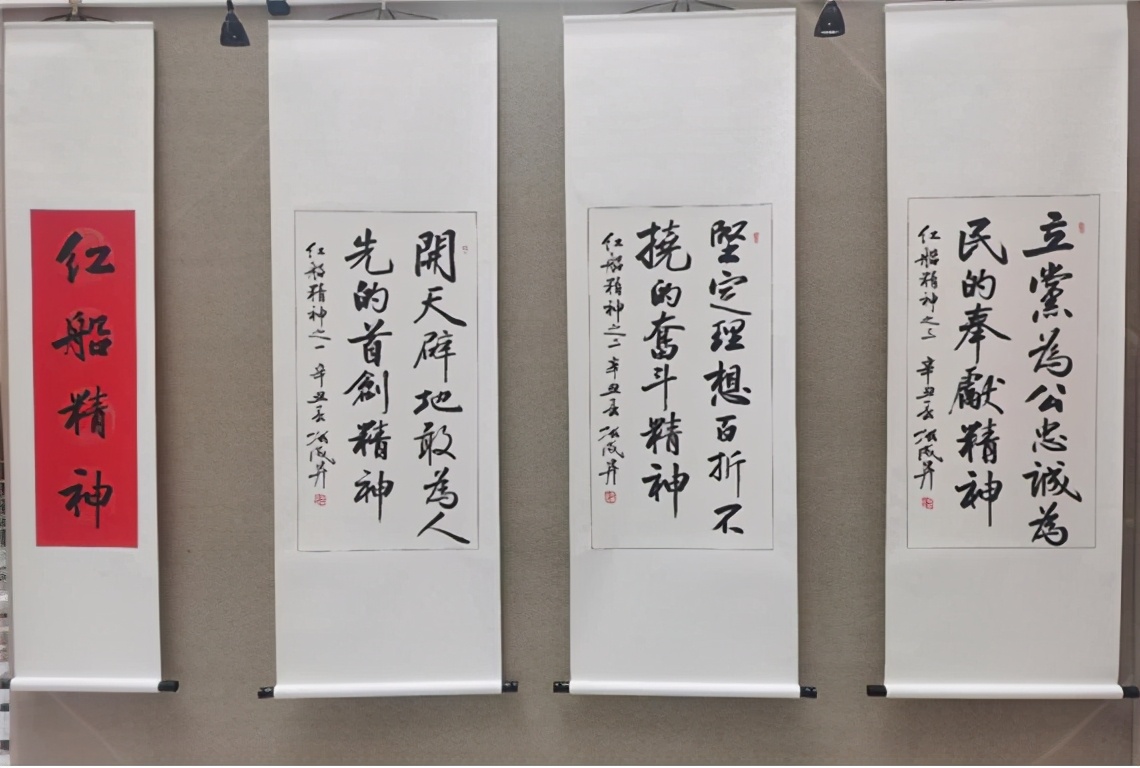 红船精神
開天辟地敢為人
先的首創精神
红船精神之一 辛丑夏
堅定理想百折不
撓的奮斗精神
红船精神之二 辛丑夏
立黨為公忠誠為
民的奉獻精神
红船精神之三 辛丑夏